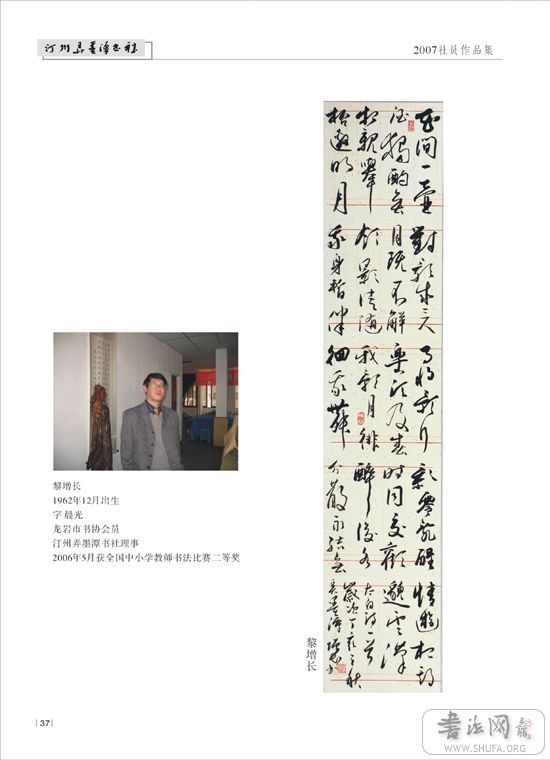 汀州弄墨潭书社
2007社员作品集
花間一壺
酒獨酌無
相親舉
杯邀明月
對影成三人
月既不解
飲影徒隨
我身暫伴
月將影行
樂須及春
我歌月徘
徊我舞
影零亂醒
時同交歡
醉後各
分散永結無
情遊相期
邈雲漢
太白詩一首
歲次丁亥之秋
弄墨潭
黎增长
黎增长
1962年12月出生
字 晨光
龙岩市书协会员
汀州弄墨潭书社理事
2006年5月获全国中小学教师书法比赛二等奖
37
书法网
WWW.SHUFA.ORG